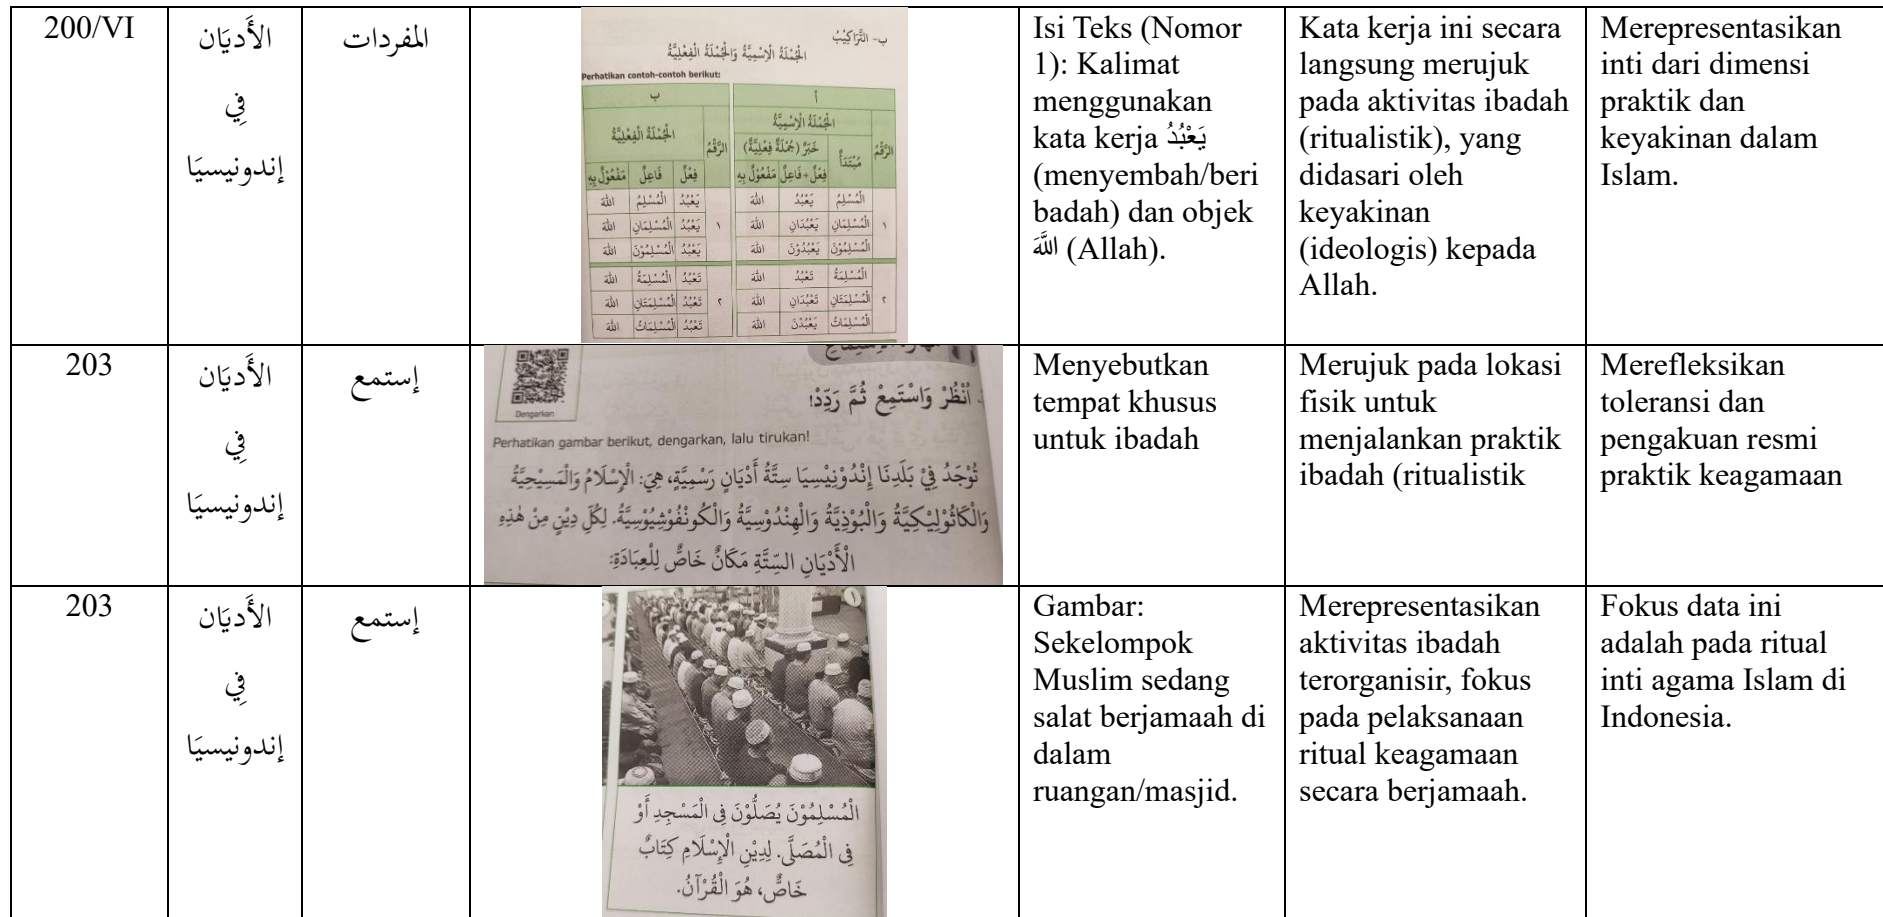 200/VI
الأَديَان
فِي
إندونيسيَا
المفردات
ب- التَّرَاكِيْبُ
الْجُمْلَةُ الْاِسْمِيَّةُ وَالْجُمْلَةُ الْفِعْلِيَّةُ
Perhatikan contoh-contoh berikut:
أ
ب
الْجُمْلَةُ الْاِسْمِيَّةُ
الْجُمْلَةُ الْفِعْلِيَّةُ
الرَّقْمُ
مُبْتَدَأٌ
خَبَرٌ (جُمْلَةٌ فِعْلِيَّةٌ)
فِعْلٌ+فَاعِلٌ
مَفْعُوْلٌ بِهِ
الرَّقْمُ
فِعْلٌ
فَاعِلٌ
مَفْعُوْلٌ بِهِ
الْمُسْلِمُ يَعْبُدُ اللهَ
يَعْبُدُ الْمُسْلِمُ اللهَ
١ الْمُسْلِمَانِ يَعْبُدَانِ اللهَ
١ يَعْبُدُ الْمُسْلِمَانِ اللهَ
الْمُسْلِمُوْنَ يَعْبُدُوْنَ اللهَ
يَعْبُدُ الْمُسْلِمُوْنَ اللهَ
الْمُسْلِمَةُ تَعْبُدُ اللهَ
تَعْبُدُ الْمُسْلِمَةُ اللهَ
٢ الْمُسْلِمَتَانِ تَعْبُدَانِ اللهَ
٢ تَعْبُدُ الْمُسْلِمَتَانِ اللهَ
الْمُسْلِمَاتُ يَعْبُدْنَ اللهَ
تَعْبُدُ الْمُسْلِمَاتُ اللهَ
Isi Teks (Nomor
1): Kalimat
menggunakan
kata kerja يَعْبُدُ
(menyembah/beri
badah) dan objek
اللَّهَ (Allah).
Kata kerja ini secara
langsung merujuk
pada aktivitas ibadah
(ritualistik), yang
didasari oleh
keyakinan
(ideologis) kepada
Allah.
Merepresentasikan
inti dari dimensi
praktik dan
keyakinan dalam
Islam.
203
الأَديَان
فِي
إندونيسيَا
إستمع
Dengarkan
اُنْظُرْ وَاسْتَمِعْ ثُمَّ رَدِّدْ!
Perhatikan gambar berikut, dengarkan, lalu tirukan!
تُوْجَدُ فِيْ بَلَدِنَا إِنْدُوْنِيْسِيَا سِتَّةُ أَدْيَانٍ رَسْمِيَّةٍ، هِيَ: الْإِسْلَامُ وَالْمَسِيْحِيَّةُ
وَالْكَاثُوْلِيْكِيَّةُ وَالْبُوْذِيَّةُ وَالْهِنْدُوْسِيَّةُ وَالْكُوْنْفُوْشِيُوْسِيَّةُ. لِكُلِّ دِيْنٍ مِنْ هٰذِهِ
الْأَدْيَانِ السِّتَّةِ مَكَانٌ خَاصٌّ لِلْعِبَادَةِ:
Menyebutkan
tempat khusus
untuk ibadah
Merujuk pada lokasi
fisik untuk
menjalankan praktik
ibadah (ritualistik
Merefleksikan
toleransi dan
pengakuan resmi
praktik keagamaan
203
الأَديَان
فِي
إندونيسيَا
إستمع
الْمُسْلِمُوْنَ يُصَلُّوْنَ فِي الْمَسْجِدِ أَوْ
فِي الْمُصَلَّى. لِدِيْنِ الْإِسْلَامِ كِتَابٌ
خَاصٌّ، هُوَ الْقُرْآنُ.
Gambar:
Sekelompok
Muslim sedang
salat berjamaah di
dalam
ruangan/masjid.
Merepresentasikan
aktivitas ibadah
terorganisir, fokus
pada pelaksanaan
ritual keagamaan
secara berjamaah.
Fokus data ini
adalah pada ritual
inti agama Islam di
Indonesia.